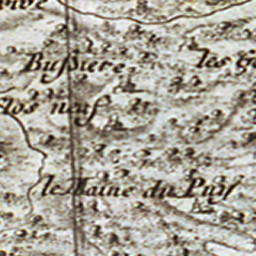 Bussiere
les
Clos neuf
le Maine du Puis